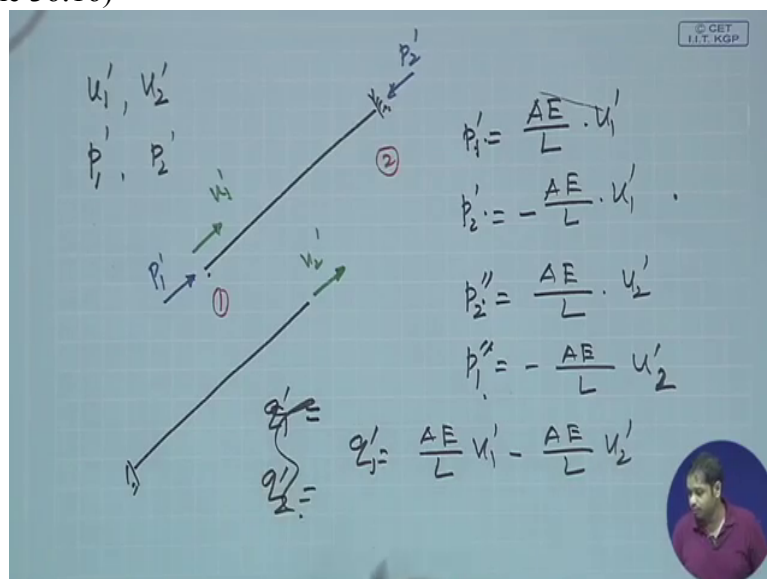 © CET
I.I.T. KGP
u₁', u₂'
p₁', p₂'
p₂'
②
u₁'
p₁'
①
u₂'
p₁' = AE/L · u₁'
p₂' = - AE/L · u₁'
p₂'' = AE/L · u₂'
p₁'' = - AE/L u₂'
q₁' =
q₂' =
q₁' = AE/L u₁' - AE/L u₂'